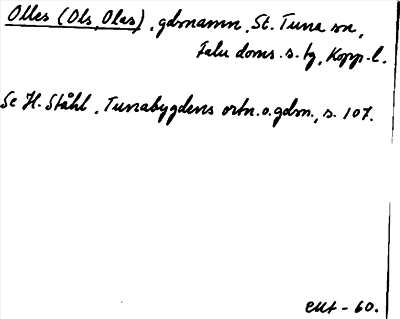 Olles (Ols, Olas), gdsnamn, St. Tuna sn,
Falu doms. s. tg, Kopp. l.
Se H. Ståhl, Tunabygdens ortn. o. gdsn., s. 107.
EWt - 60.